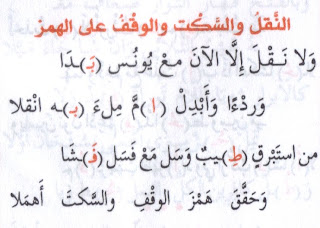 النَّقلُ والسَّكْت والوقْفُ على الهمز
وَلا نَـقْـلَ إِلَّا الآنَ مـعْ يُونُـسٍ (بَـ)ـدَا
وَرِدْءًا وَأَبْدِلْ (ا)مَّ مِلءَ (بـِ)ـه انْقلا
من اسْتَبْرقٍ (طِـ)ـيبٌ وَسَل مَعْ فَسَل (فَـ)ـشَا
وَحَقَّقَ هَمْزَ الوقْفِ والسَّكتَ أَهمَلا